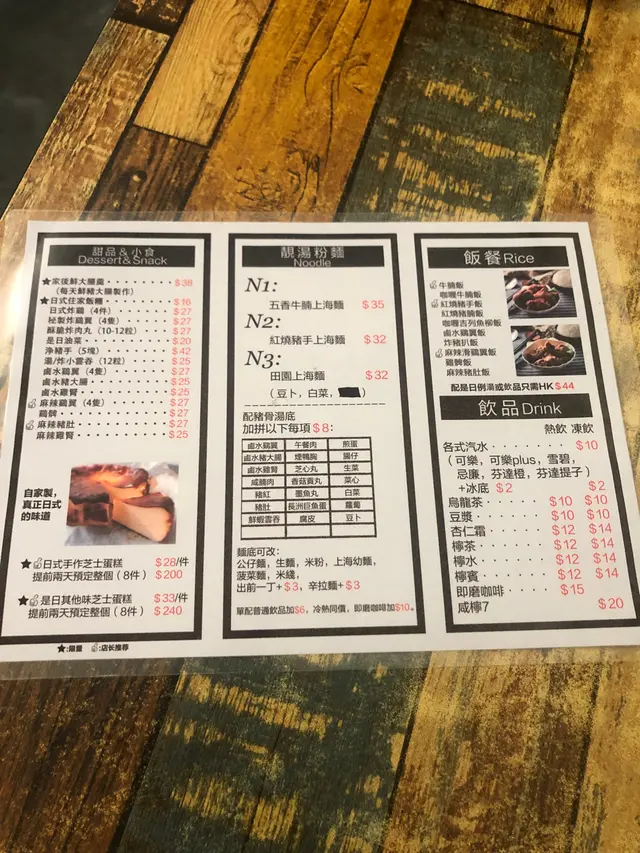 甜品＆小食
Dessert＆Snack
★家後鮮大腸羹 $38
（每天鮮豬大腸製作）
★日式住家飯糰 $16
日式炸雞（4件） $27
秘製炸雞翼（4隻） $27
酥脆炸肉丸（10-12粒） $27
是日油菜 $20
淨豬手（5塊） $42
湯/炸小雲吞（12粒） $25
鹵水雞翼（4隻） $27
鹵水豬大腸 $25
鹵水雞腎 $25
麻辣雞翼（4隻） $27
雞髀 $27
麻辣豬肚 $27
麻辣雞腎 $25
自家製，
真正日式
的味道
★日式手作芝士蛋糕 $28/件
提前兩天預定整個（8件） $200
★是日其他味芝士蛋糕 $33/件
提前兩天預定整個（8件） $240
★:限量 :店长推荐
靚湯粉麵
Noodle
N1:
五香牛腩上海麵 $35
N2:
紅燒豬手上海麵 $32
N3:
田園上海麵 $32
（豆卜，白菜，）
配豬骨湯底
加拼以下每項$8:
鹵水雞翼 午餐肉 煎蛋
鹵水豬大腸 煙鴨胸 腸仔
鹵水雞腎 芝心丸 生菜
咸腩肉 香菇貢丸 菜心
豬紅 墨魚丸 白菜
豬肚 長洲巨魚蛋 蘿蔔
鮮蝦雲吞 腐皮 豆卜
麵底可改:
公仔麵，生麵，米粉，上海幼麵，
菠菜麵，米綫，
出前一丁+$3，辛拉麵+$3
單配普通飲品加$6，冷熱同價，即磨咖啡加$10。
飯餐Rice
牛腩飯
咖喱牛腩飯
紅燒豬手飯
紅燒豬腩飯
咖喱吉列魚柳飯
鹵水雞翼飯
炸豬扒飯
麻辣滑雞翼飯
雞髀飯
麻辣豬肚飯
配是日例湯或飲品只需HK$44
飲品Drink
熱飲 凍飲
各式汽水 $10
（可樂，可樂plus，雪碧，
忌廉，芬達橙，芬達提子）
+冰底 $2 $2
烏龍茶 $10 $10
豆漿 $10 $10
杏仁霜 $12 $14
檸茶 $12 $14
檸水 $12 $14
檸賓 $12 $14
即磨咖啡 $15
咸檸7 $20